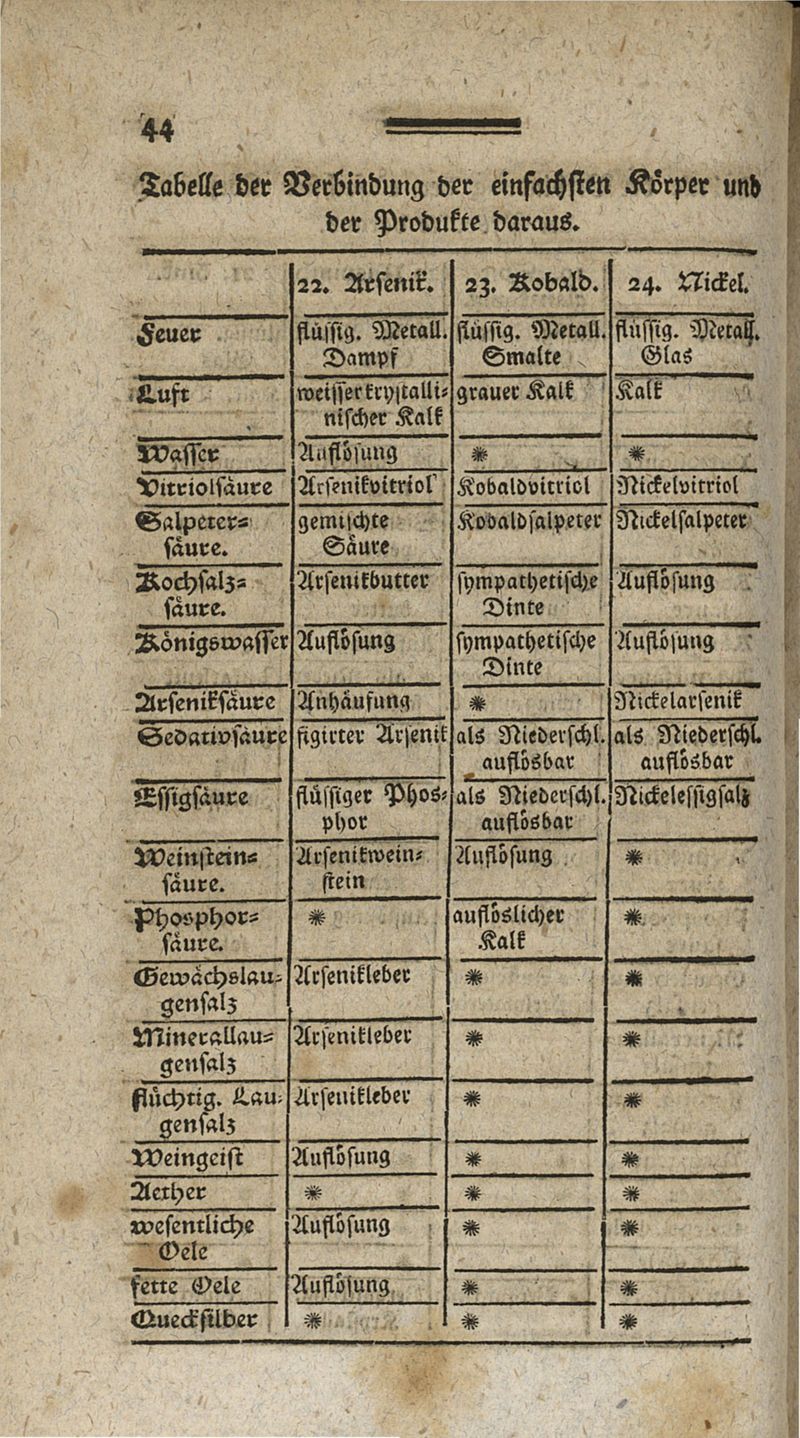 44
Tabelle der Verbindung der einfachsten Körper und
der Produkte daraus.
22. Arsenik. 23. Kobald. 24. Nickel.
Feuer flüssig. Metall. flüssig. Metall. flüssig. Metall.
Dampf Smalte Glas
Luft weisser krystalli- grauer Kalk Kalk
nischer Kalk
Wasser Auflösung * *
Vitriolsäure Arsenikvitriol Kobaldvitriol Nickelvitriol
Salpeter- gemischte Kobaldsalpeter Nickelsalpeter
säure. Säure
Kochsalz- Arsenikbutter sympathetische Auflösung
säure. Dinte
Königswasser Auflösung sympathetische Auflösung
Dinte
Arseniksäure Anhäufung * Nickelarsenik
Sedativsäure figirter Arsenik als Niederschl. als Niederschl.
auflösbar auflösbar
Essigsäure flüssiger Phos- als Niederschl. Nickelessigsalz
phor auflösbar
Weinstein- Arsenikwein- Auflösung *
säure. stein
Phosphor- * auflöslicher *
säure. Kalk
Gewächslau- Arsenikleber * *
gensalz
Minerallau- Arsenikleber * *
gensalz
flüchtig. Lau- Arsenikleber * *
gensalz
Weingeist Auflösung * *
Aether * * *
wesentliche Auflösung * *
Oele
fette Oele Auflösung * *
Quecksilber * * *